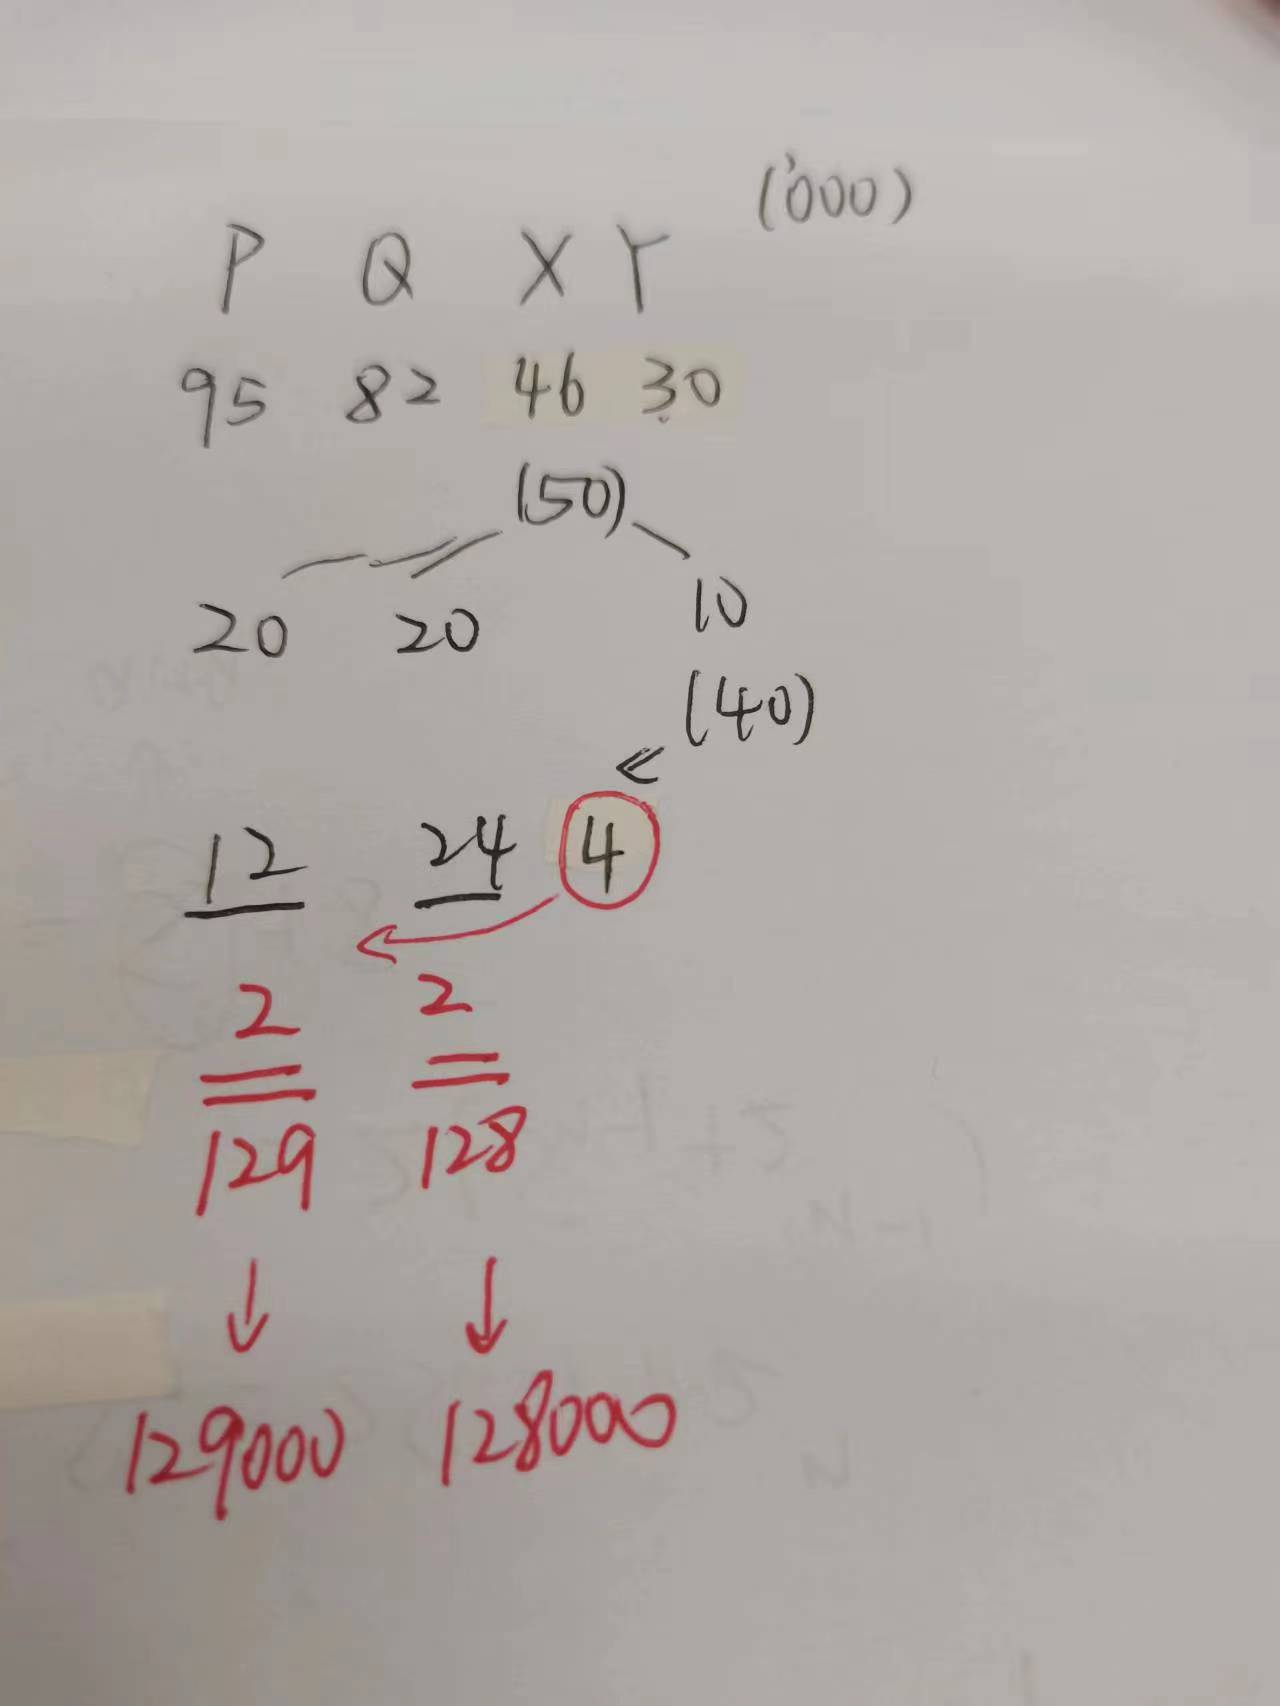 ('000)
P Q X Y
95 82 46 30
(50)
20 20 10
(40)
12 24 4
2 2
129 128
129000 128000